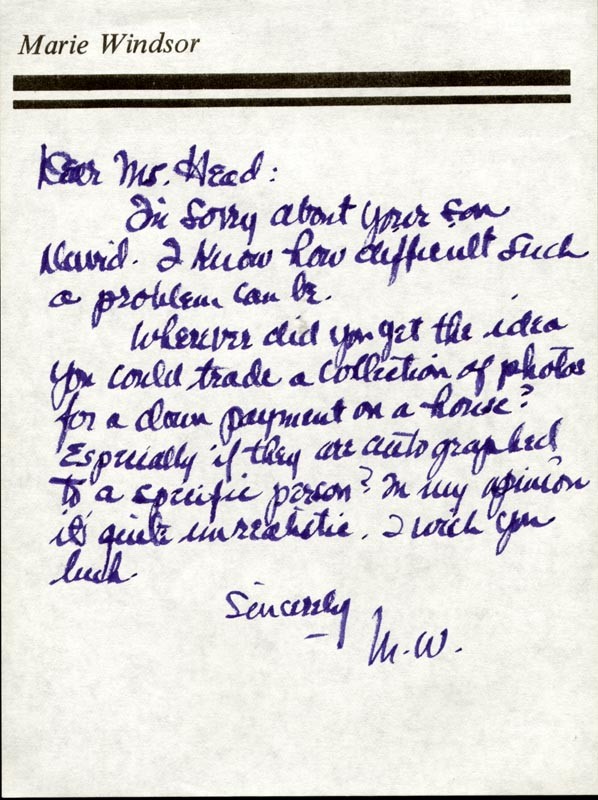 Marie Windsor
Dear Mr. Head:
I'm sorry about your son
David. I know how difficult such
a problem can be.
Wherever did you get the idea
you could trade a collection of photos
for a down payment on a house?
Especially if they are autographed
to a specific person? In my opinion
it's quite unrealistic. I wish you
luck.
Sincerely
M.W.